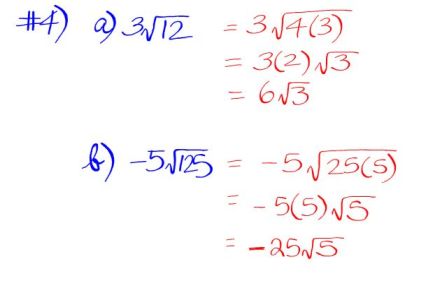 #4) a) 3√12 = 3√4(3)
= 3(2)√3
= 6√3
b) -5√125 = -5√25(5)
= -5(5)√5
= -25√5